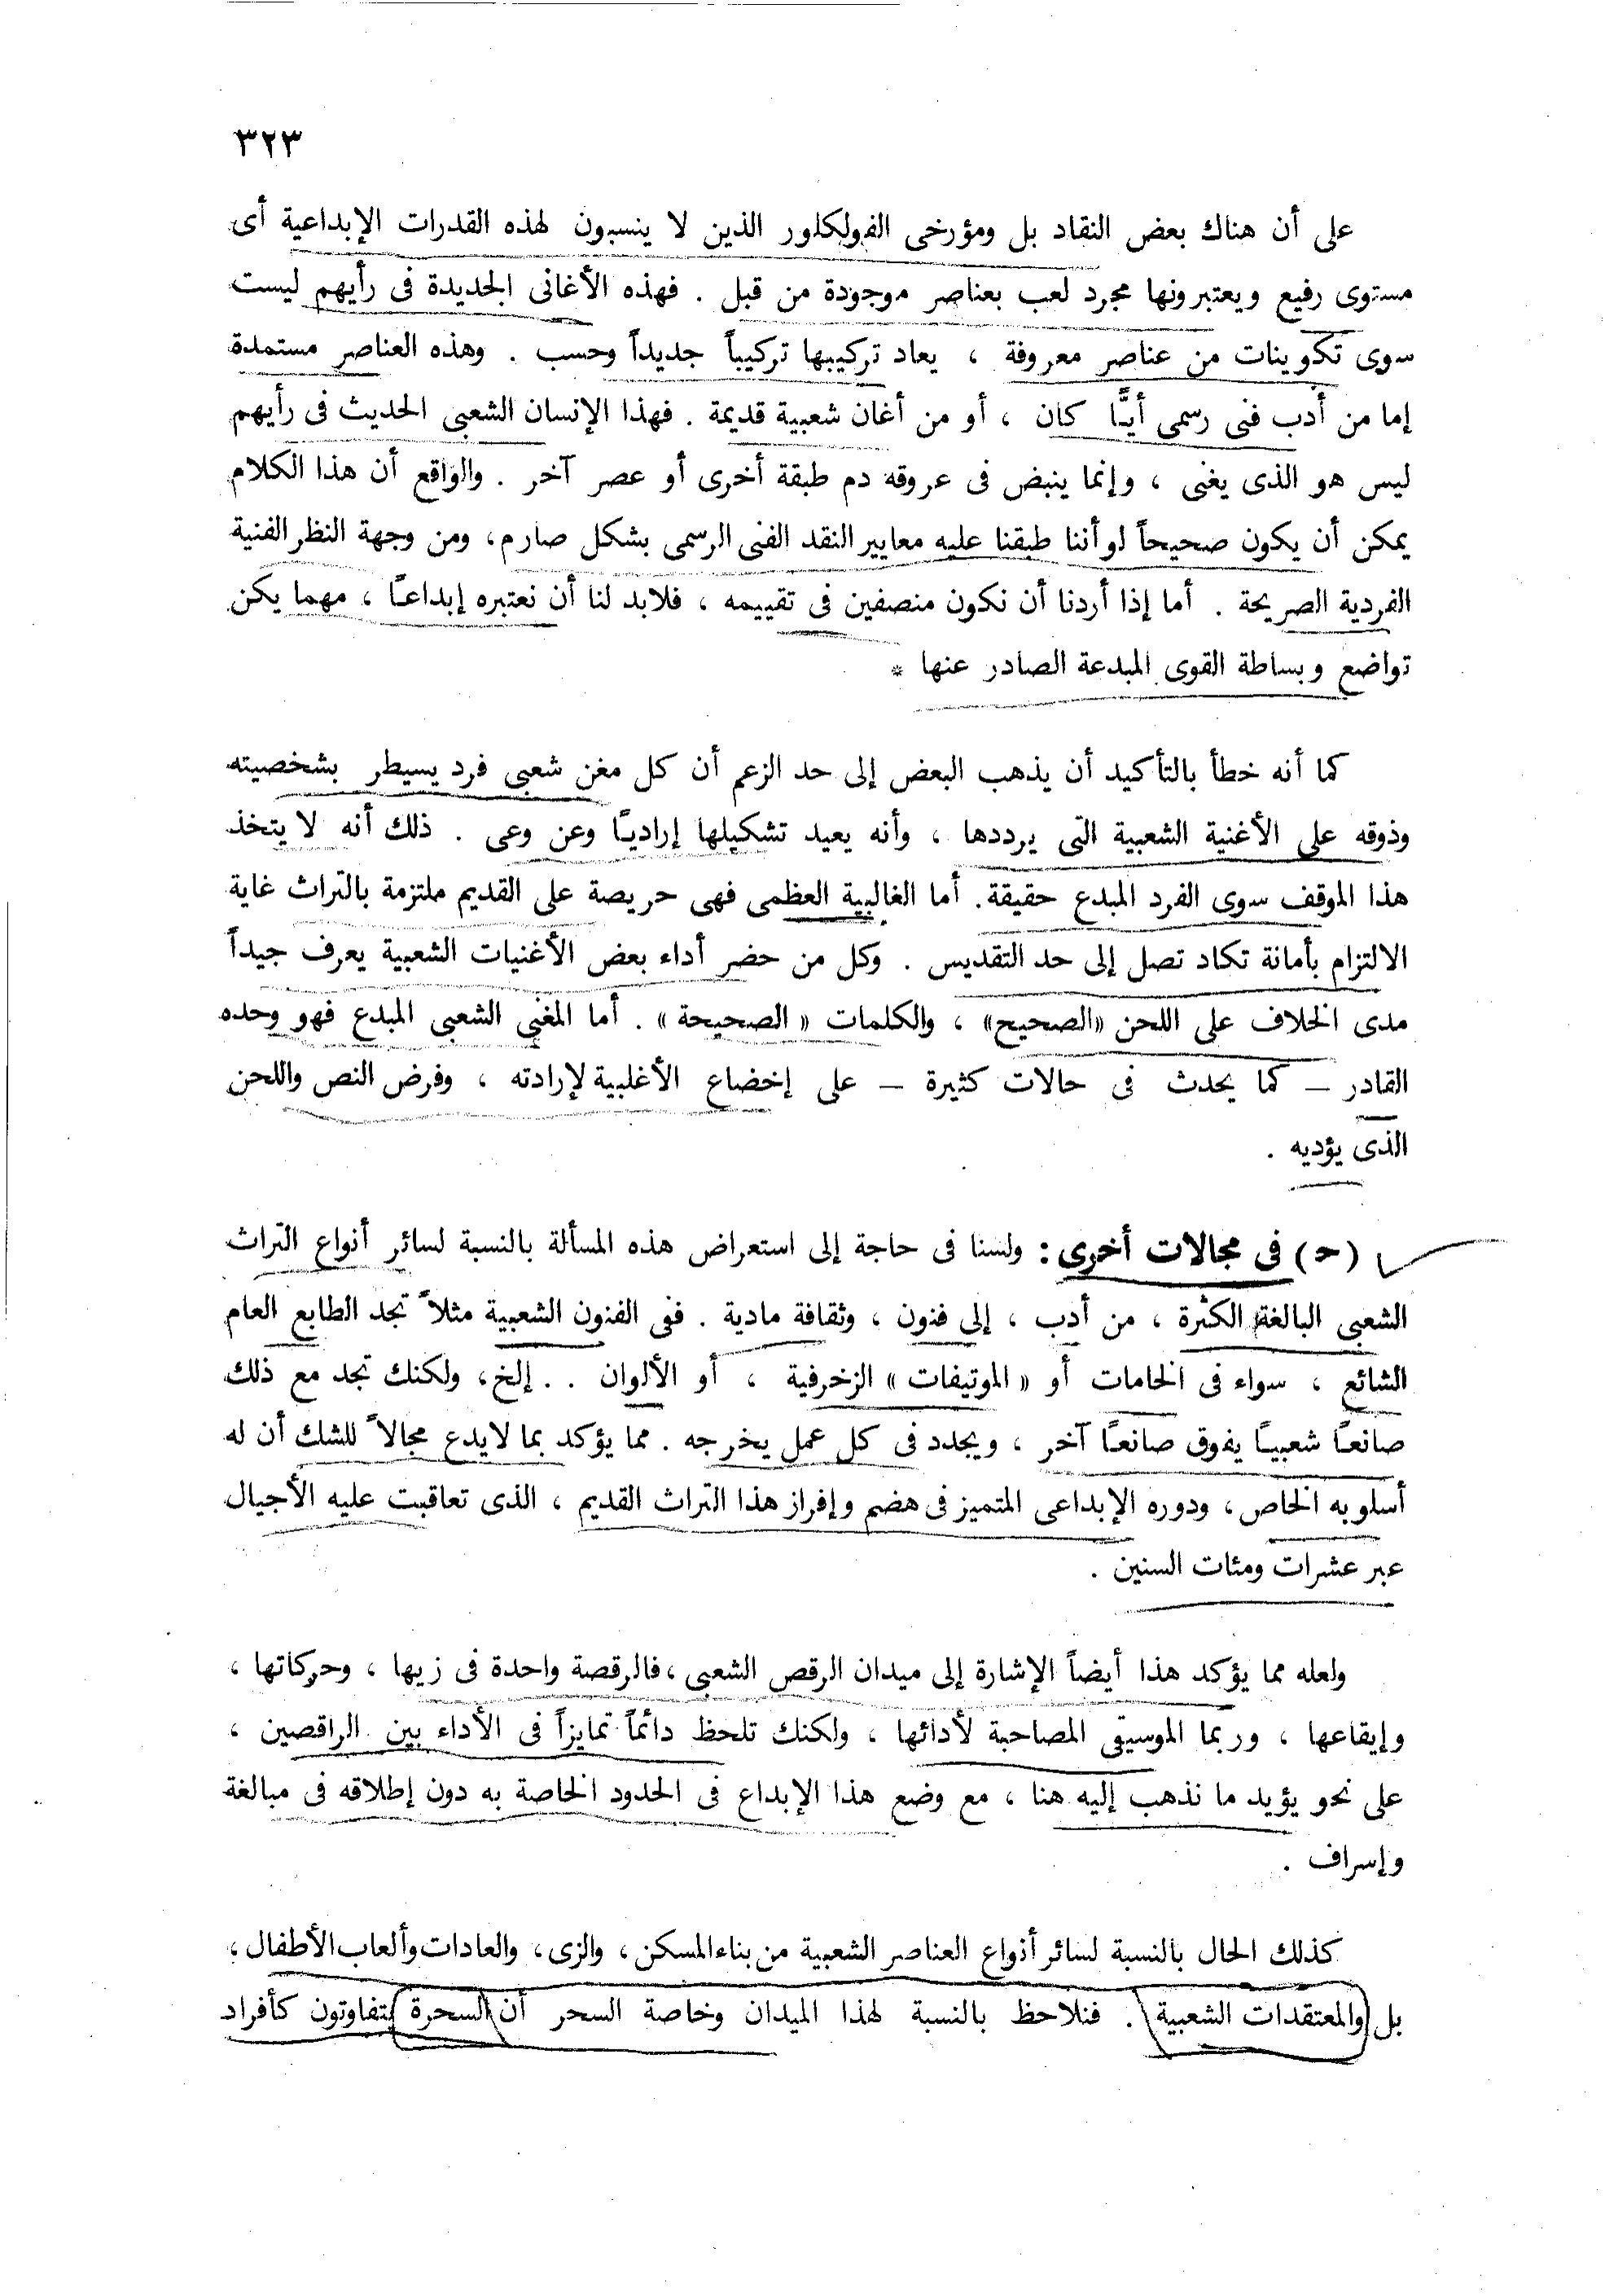 ٣٢٣
على أن هناك بعض النقاد بل ومؤرخى الفولكلور الذين لا ينسبون لهذه القدرات الإبداعية أى
مستوى رفيع ويعتبرونها مجرد لعب بعناصر موجودة من قبل . فهذه الأغانى الجديدة فى رأيهم ليست
سوى تكوينات من عناصر معروفة ، يعاد تركيبها تركيباً جديداً وحسب . وهذه العناصر مستمدة
إما من أدب فنى رسمى أيـًّا كان ، أو من أغان شعبية قديمة . فهذا الإنسان الشعبى الحديث فى رأيهم
ليس هو الذى يغنى ، وإنما ينبض فى عروقه دم طبقة أخرى أو عصر آخر . والواقع أن هذا الكلام
يمكن أن يكون صحيحاً لو أننا طبقنا عليه معايير النقد الفنى الرسمى بشكل صارم، ومن وجهة النظر الفنية
الفردية الصريحة . أما إذا أردنا أن نكون منصفين فى تقييمه ، فلابد لنا أن نعتبره إبداعـًا ، مهما يكن
تواضع وبساطة القوى المبدعة الصادر عنها *
كما أنه خطأ بالتأكيد أن يذهب البعض إلى حد الزعم أن كل مغن شعبى فرد يسيطر بشخصيته
وذوقه على الأغنية الشعبية التى يرددها ، وأنه يعيد تشكيلها إراديـًا وعن وعى . ذلك أنه لا يتخذ
هذا الموقف سوى الفرد المبدع حقيقة. أما الغالبية العظمى فهى حريصة على القديم ملتزمة بالتراث غاية
الالتزام بأمانة تكاد تصل إلى حد التقديس . وكل من حضر أداء بعض الأغنيات الشعبية يعرف جيداً
مدى الخلاف على اللحن «الصحيح» ، والكلمات « الصحيحة » . أما المغنى الشعبى المبدع فهو وحده
القادر – كما يحدث فى حالات كثيرة – على إخضاع الأغلبية لإرادته ، وفرض النص واللحن
الذى يؤديه .
(حـ) فى مجالات أخرى : ولسنا فى حاجة إلى استعراض هذه المسألة بالنسبة لسائر أنواع التراث
الشعبى البالغة الكثرة ، من أدب ، إلى فنون ، وثقافة مادية . ففى الفنون الشعبية مثلاً تجد الطابع العام
الشائع ، سواء فى الخامات أو « الموتيفات » الزخرفية ، أو الألوان . . إلخ، ولكنك تجد مع ذلك
صانعـًا شعبيـًا يفوق صانعـًا آخر ، ويجدد فى كل عمل يخرجه . مما يؤكد بما لايدع مجالاً للشك أن له
أسلوبه الخاص، ودوره الإبداعى المتميز فى هضم وإفراز هذا التراث القديم ، الذى تعاقبت عليه الأجيال
عبر عشرات ومئات السنين .
ولعله مما يؤكد هذا أيضاً الإشارة إلى ميدان الرقص الشعبى ، فالرقصة واحدة فى زيها ، وحركاتها ،
وإيقاعها ، وربما الموسيقى المصاحبة لأدائها ، ولكنك تلحظ دائماً تمايزاً فى الأداء بين الراقصين ،
على نحو يؤيد ما نذهب إليه هنا ، مع وضع هذا الإبداع فى الحدود الخاصة به دون إطلاقه فى مبالغة
وإسراف .
كذلك الحال بالنسبة لسائر أنواع العناصر الشعبية من بناء المسكن ، والزى، والعادات وألعاب الأطفال ،
بل والمعتقدات الشعبية . فنلاحظ بالنسبة لهذا الميدان وخاصة السحر أن السحرة يتفاوتون كأفراد